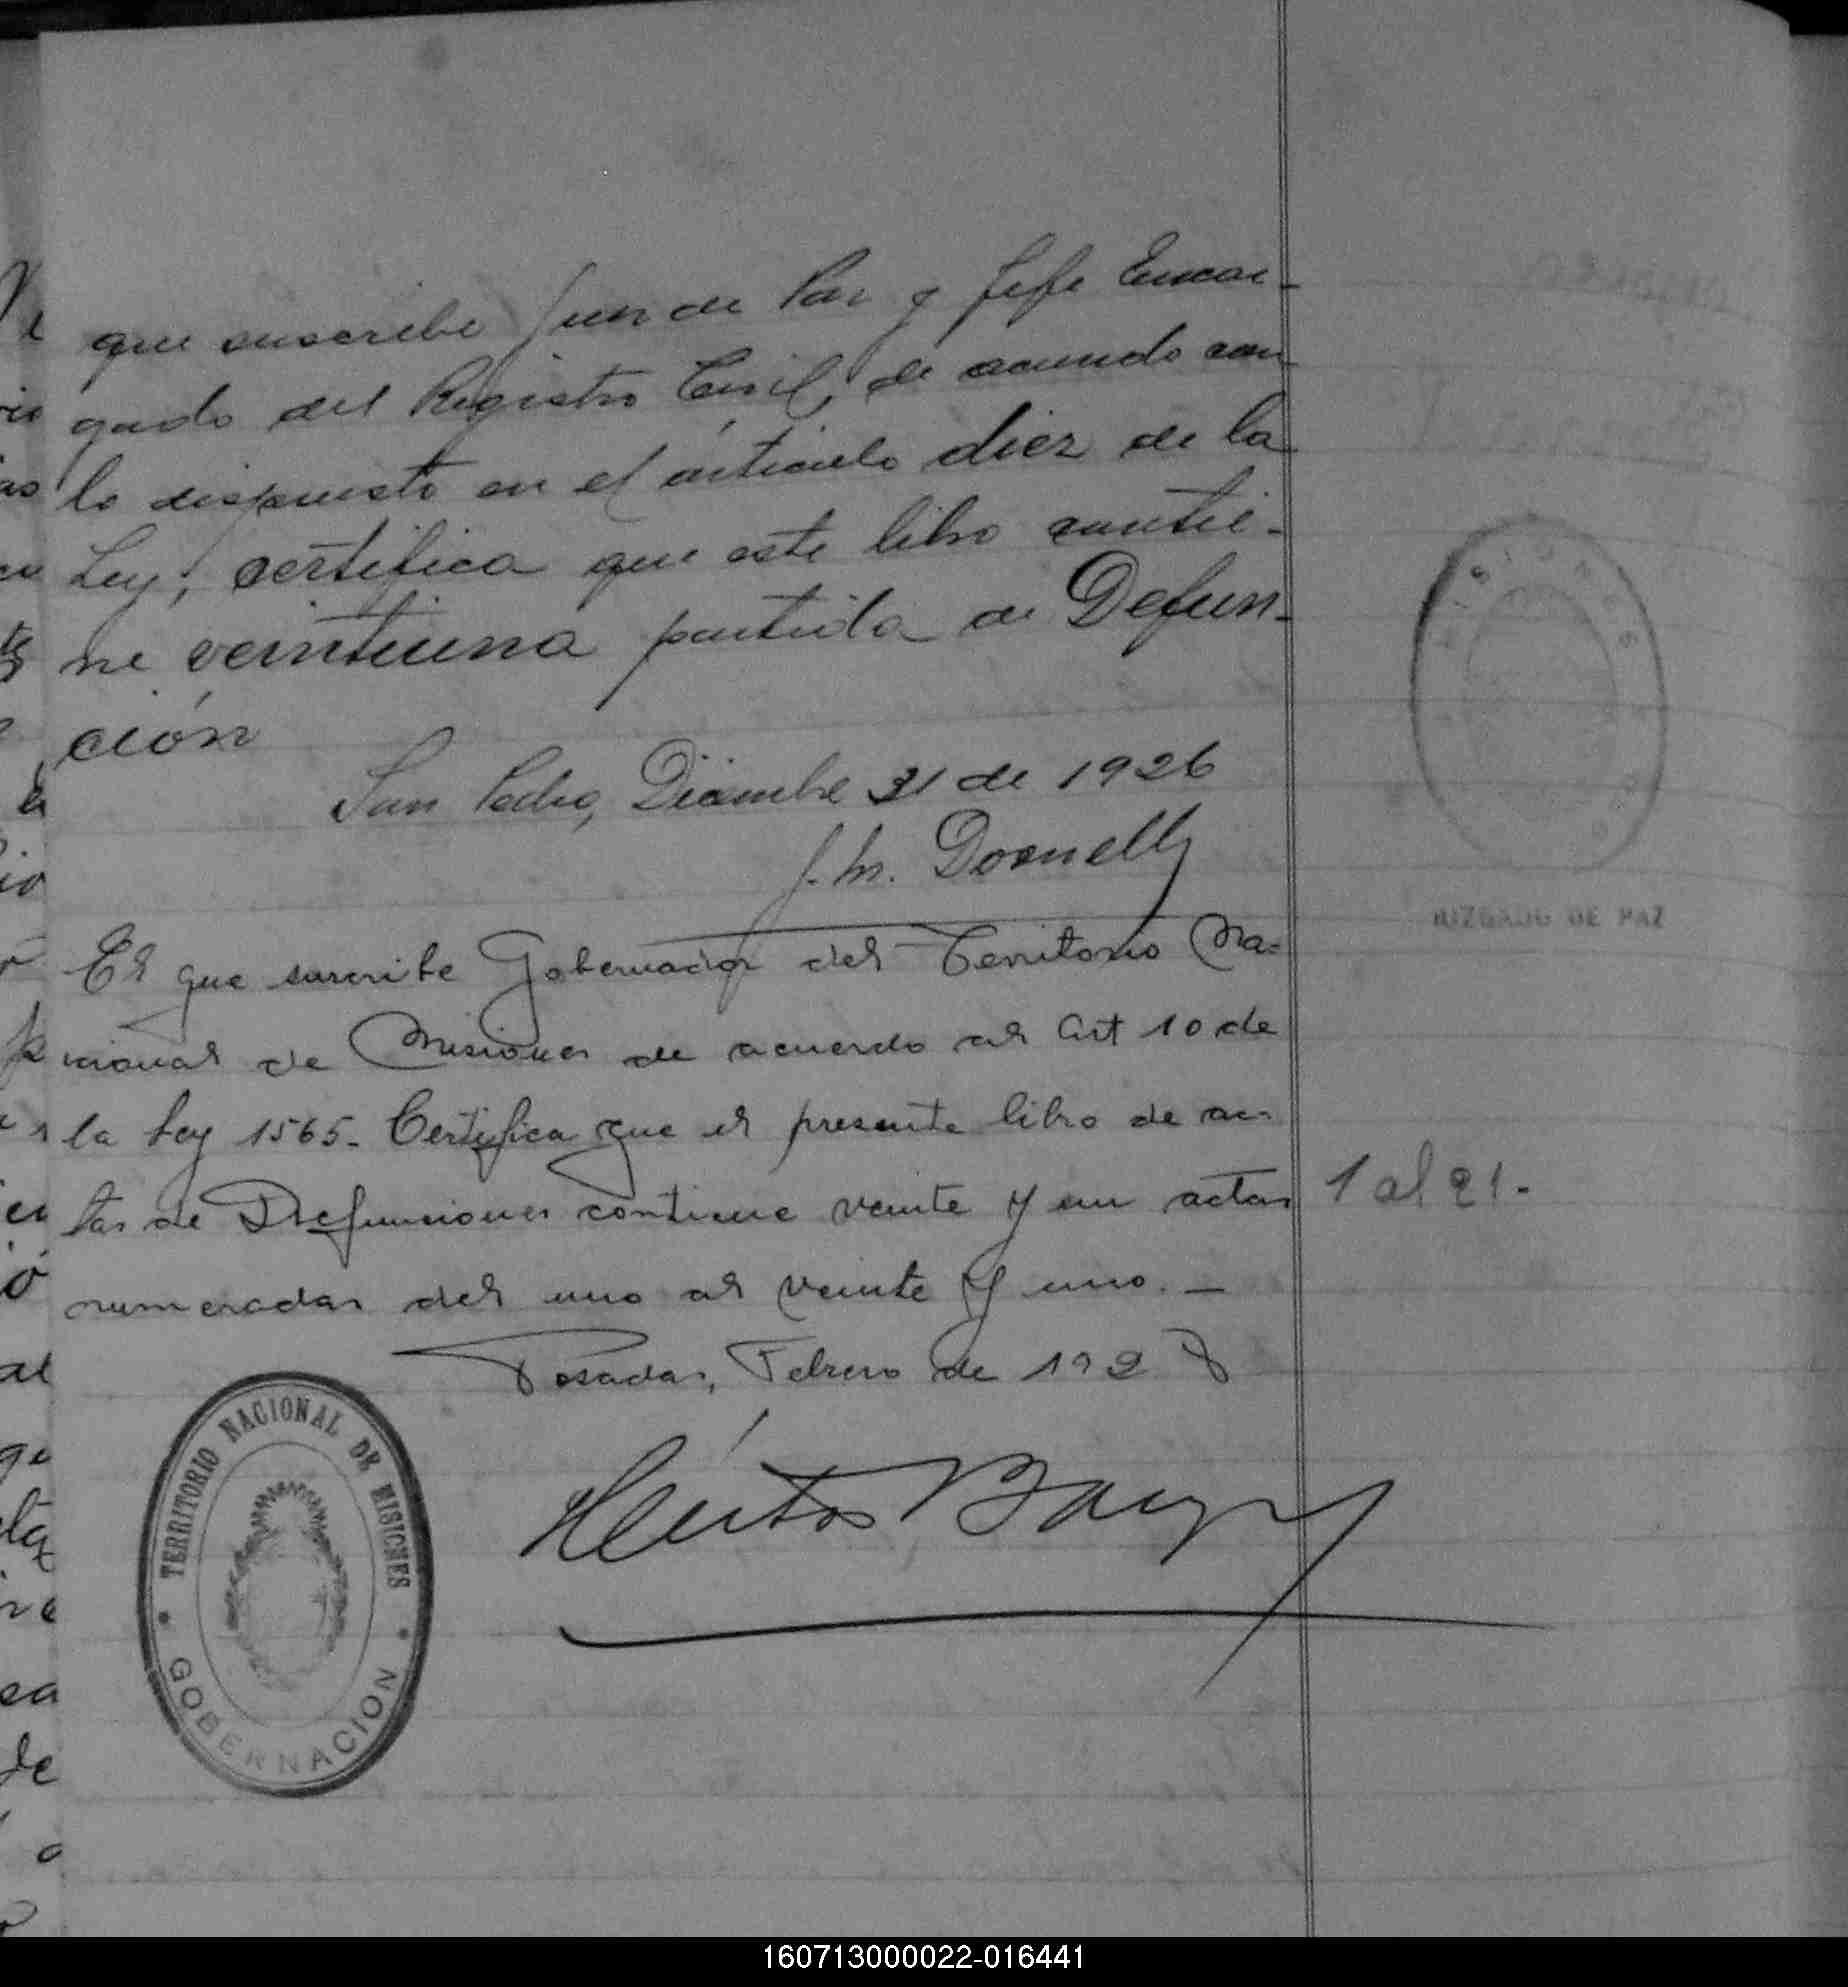 que suscribe Juez de Paz y Jefe Encar-
gado del Registro Civil, de acuerdo con
lo dispuesto en el artículo diez de la
Ley, certifica que este libro contie-
ne veintiuna partida de Defun-
ción
San Pedro, Diciembre 31 de 1926
J. M. Donnelly
El que suscribe Gobernador del Territorio Na-
cional de Misiones de acuerdo al Art 10 de
la Ley 1565. Certifica que el presente libro de ac-
tas de Defunciones contiene veinte y un actas
1 al 21.-
numeradas del uno al veinte y uno. -
Posadas, Febrero de 1928
Héctor Barreyro
TERRITORIO NACIONAL DE MISIONES
GOBERNACION
JUZGADO DE PAZ
160713000022-016441